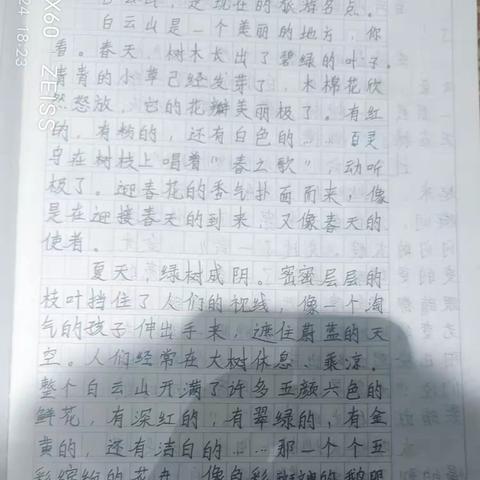 白云山，是现在的旅游名点。
白云山是一个美丽的地方，你
看。春天，树木长出了碧绿的叶子。
青青的小草已经发芽了，木棉花欣
然怒放，它的花瓣美丽极了。有红
的，有粉的，还有白色的……百灵
鸟在树枝上唱着“春之歌”，动听
极了。迎春花的香气扑面而来，像
是在迎接春天的到来，又像春天的
使者。
夏天，绿树成阴。密密层层的
枝叶挡住了人们的视线，像一个淘
气的孩子伸出手来，遮住蔚蓝的天
空。人们经常在大树休息、乘凉。
整个白云山开满了许多五颜六色的
鲜花，有深红的，有翠绿的，有金
黄的，还有洁白的……那一个个五
彩缤纷的花卉，像色彩斑斓的鹅卵
X60 ZEISS
24 18:23